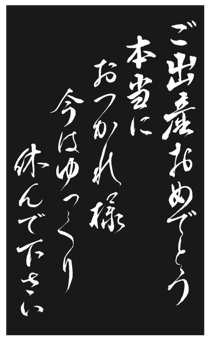 ご出産おめでとう
本当に
おつかれ様
今はゆっくり
休んで下さい